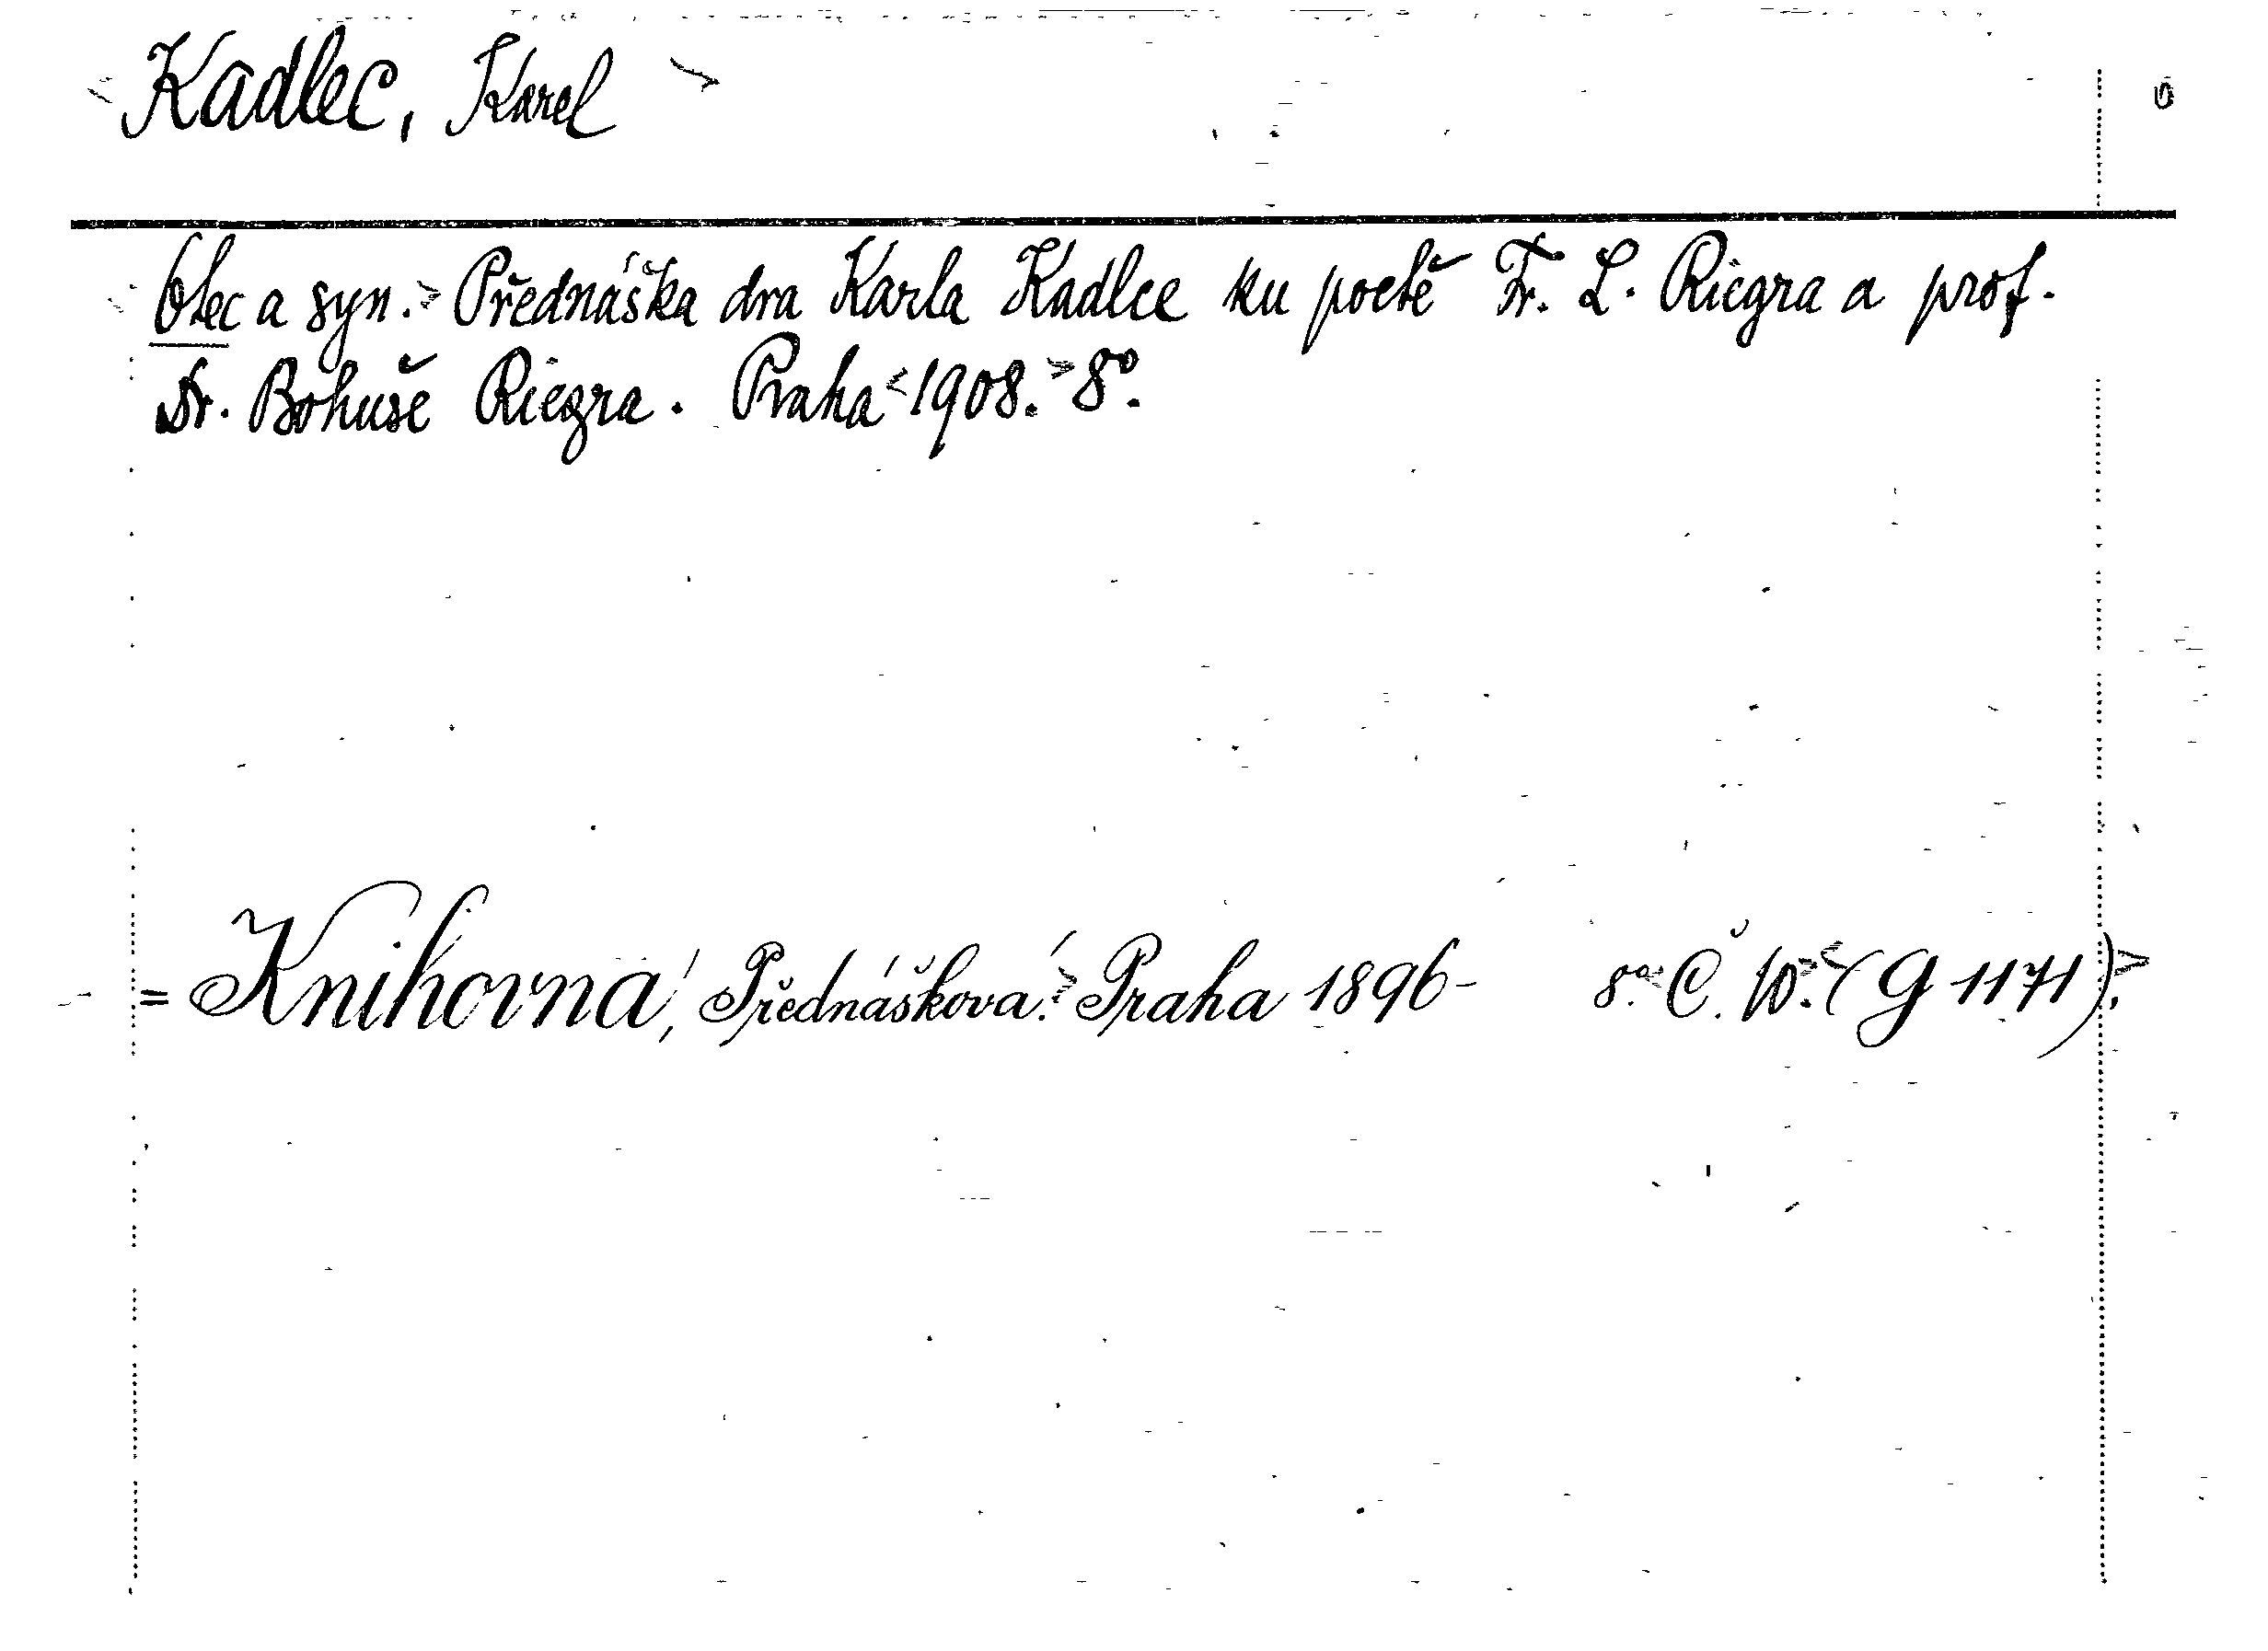 Kadlec, Karel
Otec a syn. Přednáška dra Karla Kadlce ku poctě Fr. L. Riegra a prof.
Dr. Bohuše Riegra. Praha 1908. 8°.
= Knihovna, Přednášková. Praha 1896- 8°. Č. 10. (G 1171).